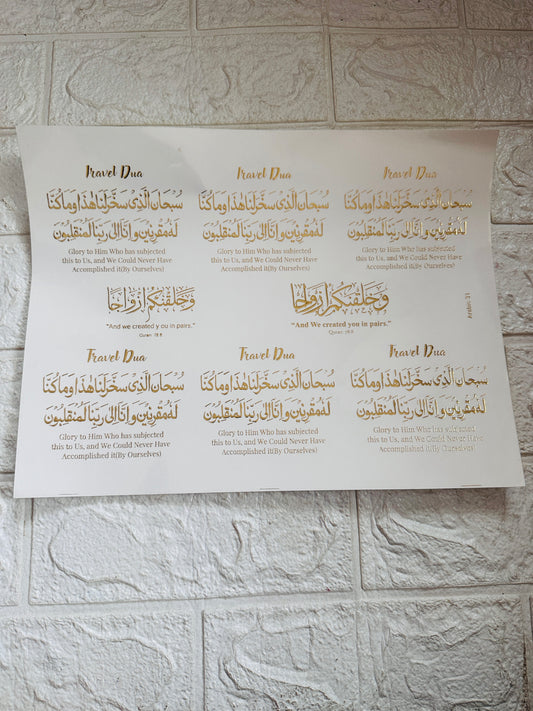 Travel Dua
سُبْحَانَ الَّذِي سَخَّرَ لَنَا هٰذَا وَمَا كُنَّا
لَهُ مُقْرِنِيْنَ وَاِنَّا اِلٰى رَبِّنَا لَمُنْقَلِبُوْنَ
Glory to Him Who has subjected
this to Us, and We Could Never Have
Accomplished it(By Ourselves)
Travel Dua
سُبْحَانَ الَّذِي سَخَّرَ لَنَا هٰذَا وَمَا كُنَّا
لَهُ مُقْرِنِيْنَ وَاِنَّا اِلٰى رَبِّنَا لَمُنْقَلِبُوْنَ
Glory to Him Who has subjected
this to Us, and We Could Never Have
Accomplished it(By Ourselves)
Travel Dua
سُبْحَانَ الَّذِي سَخَّرَ لَنَا هٰذَا وَمَا كُنَّا
لَهُ مُقْرِنِيْنَ وَاِنَّا اِلٰى رَبِّنَا لَمُنْقَلِبُوْنَ
Glory to Him Who has subjected
this to Us, and We Could Never Have
Accomplished it(By Ourselves)
وَخَلَقْنَاكُمْ أَزْوَاجًا
"And we created y ou in pairs."
Quran 78:8
وَخَلَقْنَاكُمْ أَزْوَاجًا
"And We created you in pairs."
Quran 78:8
Arabic 31
Travel Dua
سُبْحَانَ الَّذِي سَخَّرَ لَنَا هٰذَا وَمَا كُنَّا
لَهُ مُقْرِنِيْنَ وَاِنَّا اِلٰى رَبِّنَا لَمُنْقَلِبُوْنَ
Glory to Him Who has subjected
this to Us, and We Could Never Have
Accomplished it(By Ourselves)
Travel Dua
سُبْحَانَ الَّذِي سَخَّرَ لَنَا هٰذَا وَمَا كُنَّا
لَهُ مُقْرِنِيْنَ وَاِنَّا اِلٰى رَبِّنَا لَمُنْقَلِبُوْنَ
Glory to Him Who has subjected
this to Us, and We Could Never Have
Accomplished it(By Ourselves)
Travel Dua
سُبْحَانَ الَّذِي سَخَّرَ لَنَا هٰذَا وَمَا كُنَّا
لَهُ مُقْرِنِيْنَ وَاِنَّا اِلٰى رَبِّنَا لَمُنْقَلِبُوْنَ
Glory to Him Who has subjected
this to Us, and We Could Never Have
Accomplished it(By Ourselves)